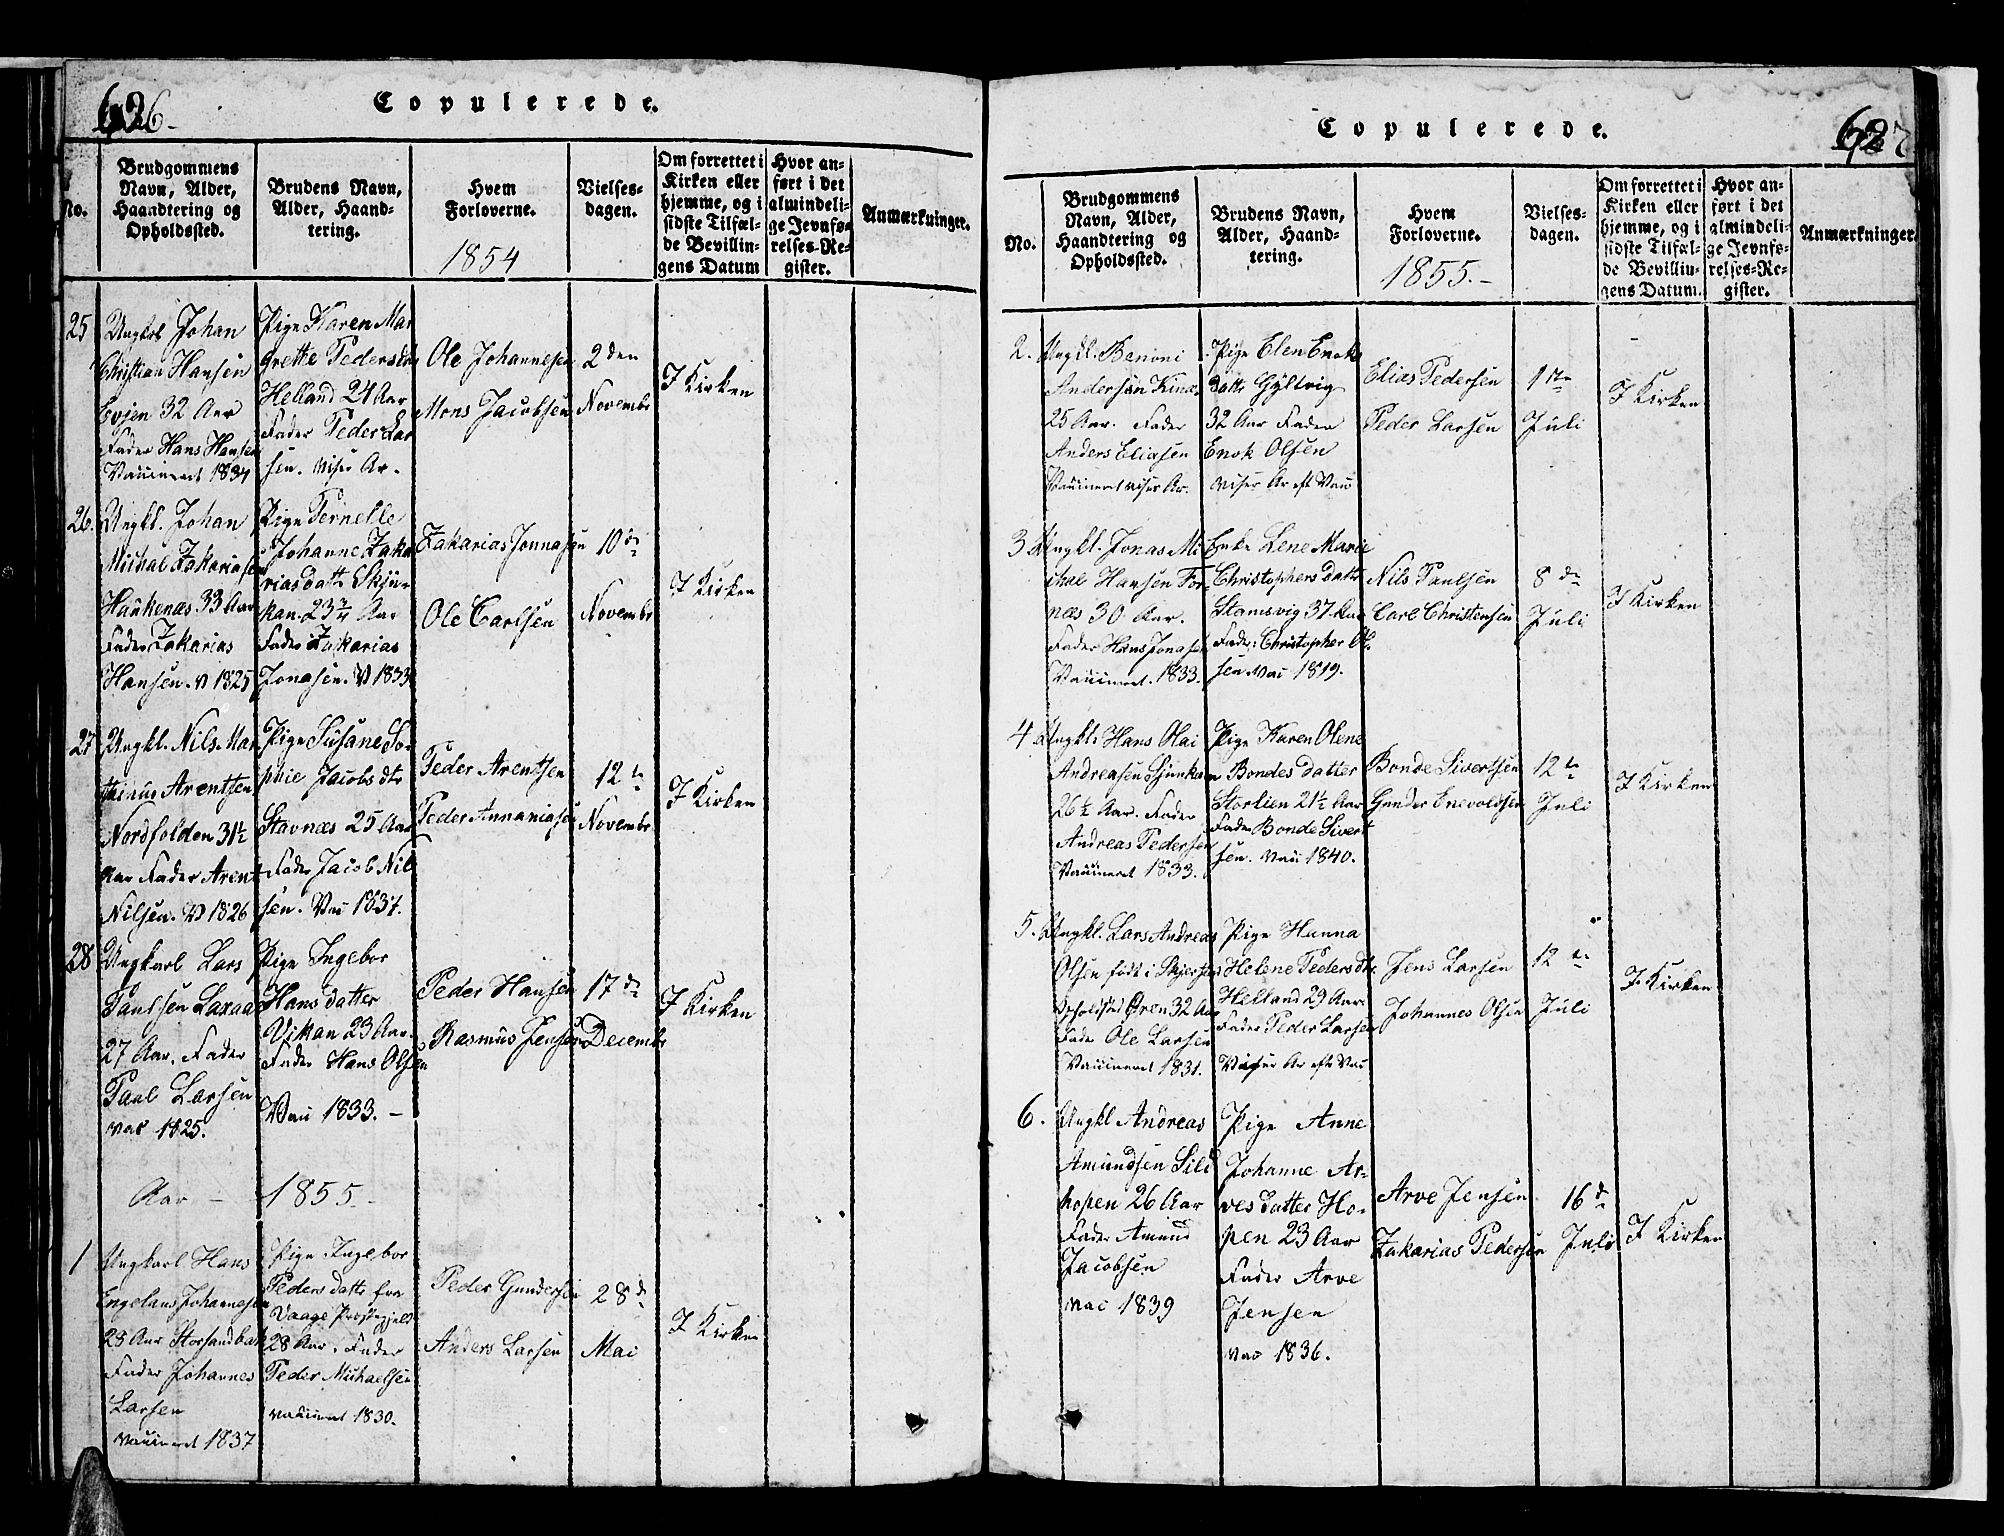 626
Copulerede.
No.
Brudgommens
Navn, Alder,
Haandtering og
Opholdssted.
Brudens Navn,
Alder, Haand-
tering.
Hvem
Forloverne.
1854
Vielses-
dagen.
Om forrettet i
Kirken eller
hjemme, og i
sidste Tilfæl-
de Bevillin-
gens Datum
Hvor an-
ført i det
almindeli-
ge Jevnfø-
relses-Re-
gister.
Anmærkninger.
25
Ungkl Johan
Christian Hansen
Evjen 32 Aar
Fader Hans Hansen
Vaccineret 1834
Pige Karen Mar
grethe Pedersdtr
Helland 24 Aar
Fader Peder Lar
sen. viser Ar.
Ole Johannesen
Mons Jacobsen
2 den
Novembr
I Kirken
26
Ungkl. Johan
Michal Zakariasen
Haukenæs 33 Aar
Fader Zakarias
Hansen. V 1825
Pige Pernelle
Johanne Zaka
riasdatt Skjn-
kan 23 3/4 Aar
Fader Zakarias
Jonasen. V 1833
Zakarias Jonnasen
Ole Carlsen
10 de
Novembr
I Kirken
27
Ungkl. Nils Mar
thinus Arentsen
Nordfolden 31½
Aar Fader Arent
Nilsen. V 1826
Pige Susane So-
phie Jacobs dtr
Stavnæs 25 Aar
Fader Jacob Nil
sen. Vac 1837.
Peder Arentsen
Peder Annaniasen
12 te
Novembr
I Kirken
28
Ungkarl Lars
Paulsen Laxaa
27 Aar. Fader
Paul Larsen
vac 1825.
Pige Ingebor
Hans datter
Vikan 23 Aar.
Fader Hans Olsen
Vac 1833. -
Peder Hansen
Rasmus Jensen
17 de
Decembr
I Kirken
Aar - 1855 -
1
Ungkarl Hans
Engelans Johannesen
23 Aar Storsandbak
Fader Johannes
Larsen
vaccineret 1837
Pige Ingebor
Peders datter fra
Vaage Præstegjeld
28 Aar. Fader
Peder Michaelsen
vaccineret 1830.
Peder Gundersen
Anders Larsen
28 de
Mai
I Kirken
Copulerede.
627
No.
Brudgommens
Navn, Alder,
Haandtering og
Opholdssted.
Brudens Navn,
Alder, Haand-
tering.
Hvem
Forloverne.
1855. -
Vielses-
dagen.
Om forrettet i
Kirken eller
hjemme, og i
sidste Tilfæl-
de Bevillin-
gens Datum.
Hvor an-
ført i det
almindeli-
ge Jevnfø-
relses-Re-
gister.
Anmærkninger.
2.
Ungkl. Benoni
Andersen Kinæ.
25 Aar. Fader
Anders Eliasen
Vaccineret viser Ar.
Pige Elen Enoks
datt Gyltvig
32 Aar Fader
Enok Olsen
viser Ar eft Vac
Elias Pedersen
Peder Larsen
1 ste
Juli
I Kirken
3
Ungkl. Jonas Mi
chal Hansen For
næs 30 Aar.
Fader Hans Jonasen
Vaccineret. 1833.
Enke Lene Marie
Christophers datt
Stamsvig 37 Aar
Fader: Christopher Ol
sen Vac 1819.
Nils Paulsen
Carl Christensen
8 de
Juli
I Kirken
4
Ungkl Hans Olai
Andreasen
26½ Aar. Fader
Andreas Pedersen
Vaccineret 1833.
Pige Karen Olene
Bondes datter
Storlien 21½ Aar
Fader Bonde Sivert
sen. Vac 1840.
Bonde Sivertsen
Gunder Enevoldsen
12 te
Juli
I Kirken
5.
Ungkl. Lars Andreas
Olsen født i Skjerstad
Opholdsted Øren 32 Aar
Fader Ole Larsen
Vaccineret 1831.
Pige Hanna
Helene Peders dtr
Helland 29 Aar.
Fader Peder Larsen
Viser Ar eft Vac
Jens Larsen
Johannes Olsen
12 te
Juli
I Kirken
6.
Ungkl Andreas
Amundsen Sild
hopen 26 Aar
Fader Amund
Jacobsen
vac 1839
Pige Anne
Johanne Ar-
ves datter Ho-
pen 23 Aar
Fader Arve
Jensen
vac 1836.
Arve Jensen
Zakarias Pedersen
16 de
Juli
I Kirken